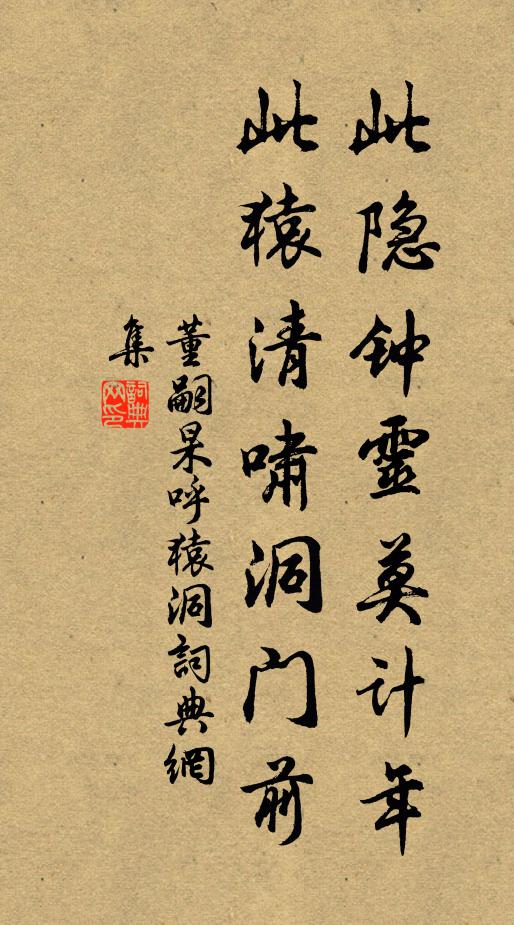 此隐钟靈莫计年
此猿清啸洞门前
董嗣杲呼猿洞詞典網
集
詞典
网印